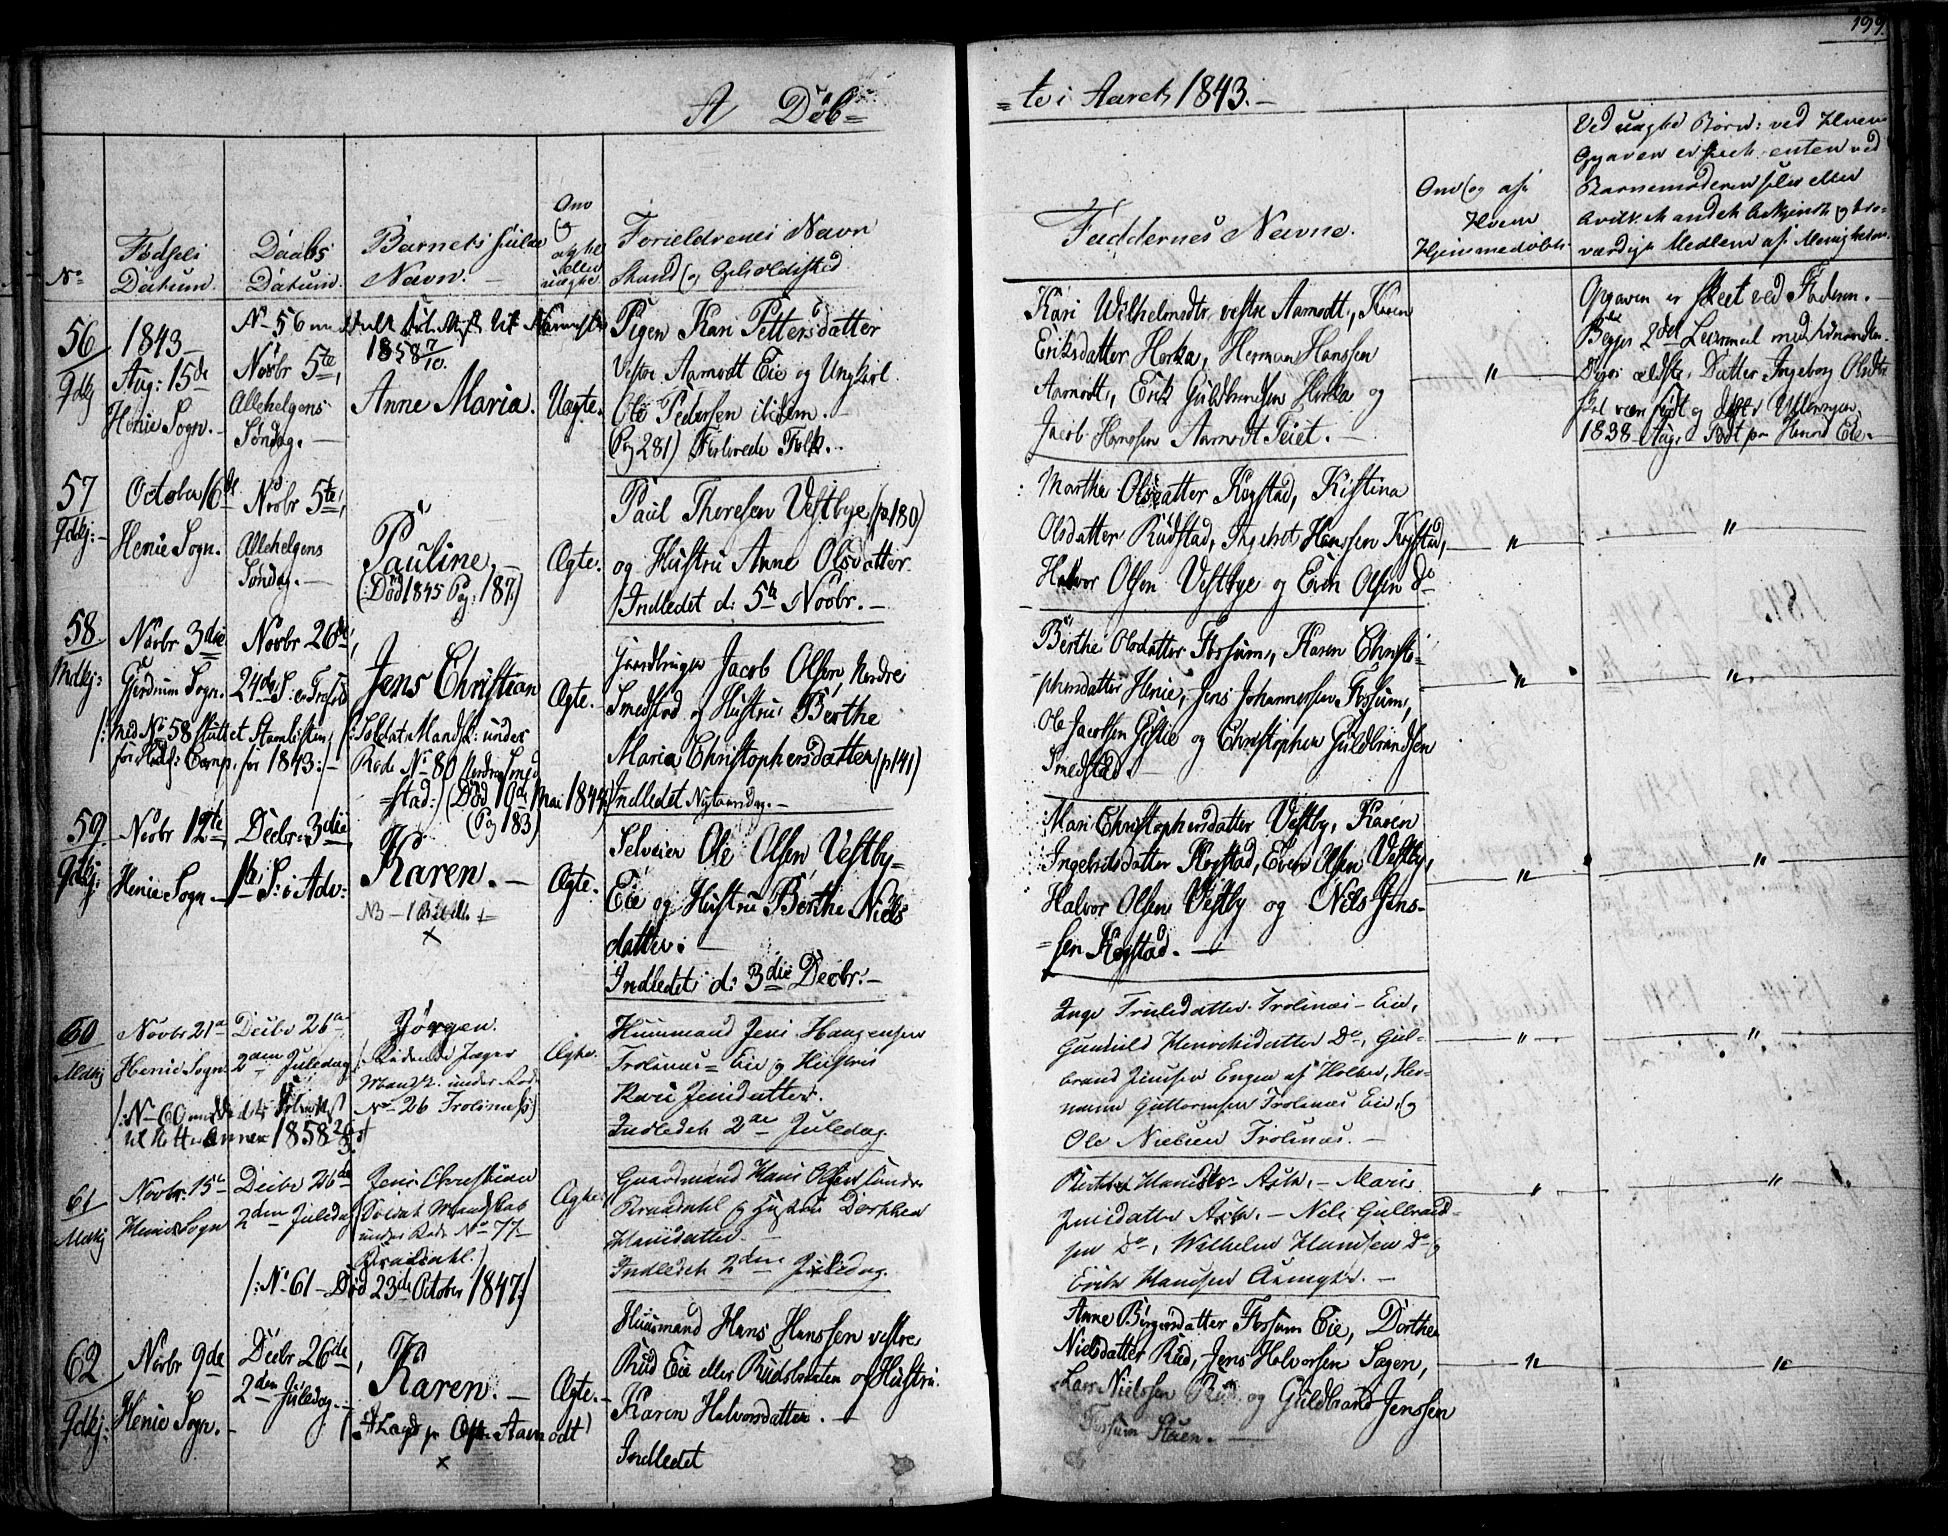 199.
A Döb=
=te i Aaret 1843.-
No
Fødsels Datum.
Daabs Datum.
Barnets fulde Navn.
Om og ægte eller uægte
Forældrenes Navn Stand og Opholdssted
Faddernes Navne.
Om og af Hvem Hjemmedöbt.
Ved uægte Børn: ved Hvem
Opgaven er skeet, enten ved
Barnemoderen selv eller
andet bekjendt og tro-
værdigt Medlem af Menigheden.
56
Gdkj
1843
Aug: 15de
Henie Sogn.-
No 56
Novbr 5te,
Allehelgens
Søndag.-
1858 7/10.
Anne Maria.
Uægte.
Pigen Kari Pettersdatter
Vestre Aamodt Eie og Ungkarl
Ole Pedersen ibidem.-
(Pg 281) Forlovede Folk.
Kari Wilhelmsdtr vestre Aamodt, Karen
Eriksdatter Horka, Herman Hanssen
Aamodt, Erik Guldbrandsen Horka og
Jacob Hanssen Aamodt Eiet.-
"
Opgaven er skeet ved Faderen.-
Begges 2det Leiermaal med hinanden.
Deres ældste Datter Ingeborg Olsdtr
skal være født og døbt i Ullensager
1838 Aug. Født pa Eie.
57
Gdkj:-
October 16de
Henie Sogn.
Novbr 5te,
Allehelgens
Søndag.-
Pauline.-
(Død 1845 Pg: 187.)
Ægte.
Paul Thoresen Vestbye (p.180)
og Hustru Anne Olsdatter.
Indledet d: 5te Novbr.-
Marthe Olsdatter Kogstad, Kistina
Olsdatter Rudstad, Ingebret Hanssen Kogstad,
Halvor Olsen Vestbye og Even Olsen do
"
"
58
Mdkj:
Novbr 3die
Gjerdrum Sogn.
Novbr 26de,
24de S: e. Trefold
Jens Christian
Ægte.
Gaardbruger Jacob Olsen Nordre
Smedstad og Hustru Berthe
Maria Christophersdatter (p 141)
Indledet Nytaarsdag.-
/:med No 58 sluttet Stamlisten
for Comp. for 1843:/-
/:Soldat: Mandsk: under
Rode No 80 Nordre Smed
=stad:/ (Død 10de Mai 1844.)
(Pg 183)
Berthe Olsdatter Fossum, Karen Christo-
phersdatter Henie, Jens Johannessen Fossum,
Ole Jacobsen Gistie og Christopher Guldbrandsen
Smedstad.
"
".
59
Gdkj:
Novbr 12te
Henie Sogn.-
Decbr 3die
1ste S: i Adv:
Karen.-
Ægte.
Selveier Ole Olsen Vestby=
Eie og Hustru Berthe Niels
datter.-
Indledet d: 3die Decbr.-
Mari Christophersdatter Vestby, Karen
Ingebretsdatter Kogstad, Even Olsen Vestby,
Halvor Olsen Vestby og Niels Jens-
=sen Kogstad.-
"
"
60
Mdkj
Novbr 21de
Henie Sogn
Decbr 26de
2den Juledag
Jörgen.
/:Ridende Jæger
Mandsk. under Rode
No 26 Trolsnæs)
/:No 60
1858
Ægte.
Huusmand Jens Haagensen
Trolsnæs=Eie og Hustru
Kari Jensdatter.
Indledet 2den Juledag.
Inge Trulsdatter Trolsnæs-Eie,
Gunhild Henriksdatter Do, Gul-
brand Jensen Engen af Holter, Her-
mann Guttormsen Trolsnæs Eie, og
Ole Nielsen Trolsnæs.-
"
"
61
Mdkj
Novbr: 15de
Henie Sogn
Decbr 26de
2den Juledag
Jens Christian
(Soldat Mandskab
under Rode No 77
Braadahl.)
/:No 61 - Død 23de October 1847:/
Ægte
Gaardmand Hans Olsen Søndre
Braadahl og Hustru Dorthea
Hansdatter.
Indledet 2den Juledag.
Berthe Hansdtr Ask,- Maria
Jensdatter Ask.- Nils Gulbrand=
sen Do, Wilhelm Hansen Do og
Erik Hansen .-
"
"
62
Gdkj:
Novbr 9de
Henie Sogn.-
Decbr 26de,
2den Juledag.-
Karen.-
Aamodt)
Ægte.-
Huusmand Hans Hanssen vestre
Rud Eie eller Rudsbraaten og Hustru
Karen Halvorsdatter.-
Indledet
Anne Börgersdatter Fossum Eie, Dorthea
Nielsdatter Rud, Jens Halvorsen Sagen,
Lars Nielssen Rud og Guldbrand Jenssen
Fossum .-
"
"